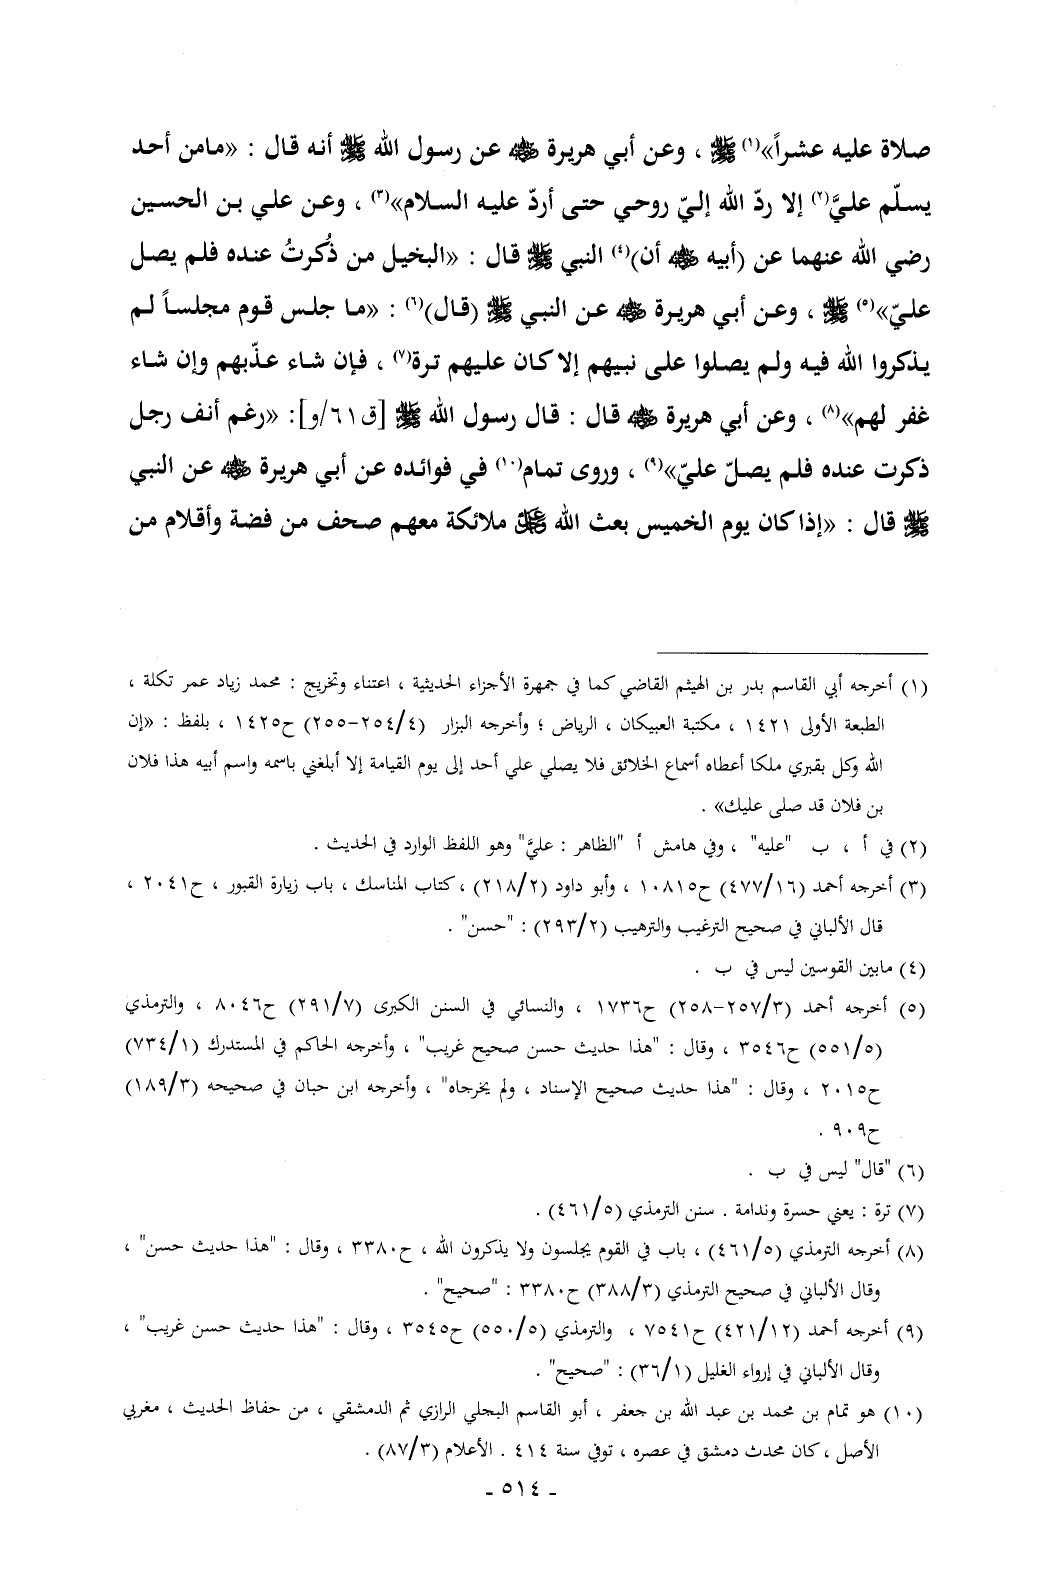 صلاة عليه عشراً»(١) ﷺ ، وعن أبي هريرة ﵁ عن رسول الله ﷺ أنه قال : «مامن أحد
يسلّم عليَّ(٢) إلا ردّ الله إليّ روحي حتى أردّ عليه السلام»(٣) ، وعن علي بن الحسين
رضي الله عنهما عن (أبيه ﵁ أن)(٤) النبي ﷺ قال : «البخيل من ذُكرتُ عنده فلم يصل
عليّ»(٥) ﷺ ، وعن أبي هريرة ﵁ عن النبي ﷺ (قال)(٦) : «ما جلس قوم مجلساً لم
يذكروا الله فيه ولم يصلوا على نبيهم إلا كان عليهم ترة(٧) ، فإن شاء عذّبهم وإن شاء
غفر لهم»(٨) ، وعن أبي هريرة ﵁ قال : قال رسول الله ﷺ [ق٦١/و]: «رغم أنف رجل
ذكرت عنده فلم يصلّ عليّ»(٩) ، وروى تمام(١٠) في فوائده عن أبي هريرة ﵁ عن النبي
ﷺ قال : «إذا كان يوم الخميس بعث الله ﷻ ملائكة معهم صحف من فضة وأقلام من
(١) أخرجه أبي القاسم بدر بن الهيثم القاضي كما في جمهرة الأجزاء الحديثية ، اعتناء وتخريج : محمد زياد عمر تكلة ،
الطبعة الأولى ١٤٢١ ، مكتبة العبيكان ، الرياض ؛ وأخرجه البزار (٢٥٤/٤-٢٥٥) ح١٤٢٥ ، بلفظ : «إن
الله وكل بقبري ملكا أعطاه أسماع الخلائق فلا يصلي علي أحد إلى يوم القيامة إلا أبلغني باسمه واسم أبيه هذا فلان
بن فلان قد صلى عليك» .
(٢) في أ ، ب "عليه" ، وفي هامش أ "الظاهر : عليَّ" وهو اللفظ الوارد في الحديث .
(٣) أخرجه أحمد (٤٧٧/١٦) ح١٠٨١٥ ، وأبو داود (٢١٨/٢) ، كتاب المناسك ، باب زيارة القبور ، ح٢٠٤١ ،
قال الألباني في صحيح الترغيب والترهيب (٢٩٣/٢) : "حسن" .
(٤) مابين القوسين ليس في ب .
(٥) أخرجه أحمد (٢٥٧/٣-٢٥٨) ح١٧٣٦ ، والنسائي في السنن الكبرى (٢٩١/٧) ح٨٠٤٦ ، والترمذي
(٥٥١/٥) ح٣٥٤٦ ، وقال : "هذا حديث حسن صحيح غريب" ، وأخرجه الحاكم في المستدرك (٧٣٤/١)
ح٢٠١٥ ، وقال : "هذا حديث صحيح الإسناد ، ولم يخرجاه" ، وأخرجه ابن حبان في صحيحه (١٨٩/٣)
ح٩٠٩ .
(٦) "قال" ليس في ب .
(٧) ترة : يعني حسرة وندامة . سنن الترمذي (٤٦١/٥) .
(٨) أخرجه الترمذي (٤٦١/٥) ، باب في القوم يجلسون ولا يذكرون الله ، ح٣٣٨٠ ، وقال : "هذا حديث حسن" ،
وقال الألباني في صحيح الترمذي (٣٨٨/٣) ح٣٣٨٠ : "صحيح" .
(٩) أخرجه أحمد (٤٢١/١٢) ح٧٥٤١ ، والترمذي (٥٥٠/٥) ح٣٥٤٥ ، وقال : "هذا حديث حسن غريب" ،
وقال الألباني في إرواء الغليل (٣٦/١) : "صحيح" .
(١٠) هو تمام بن محمد بن عبد الله بن جعفر ، أبو القاسم البجلي الرازي ثم الدمشقي ، من حفاظ الحديث ، مغربي
الأصل ، كان محدث دمشق في عصره ، توفي سنة ٤١٤ . الأعلام (٨٧/٣) .
- ٥١٤ -